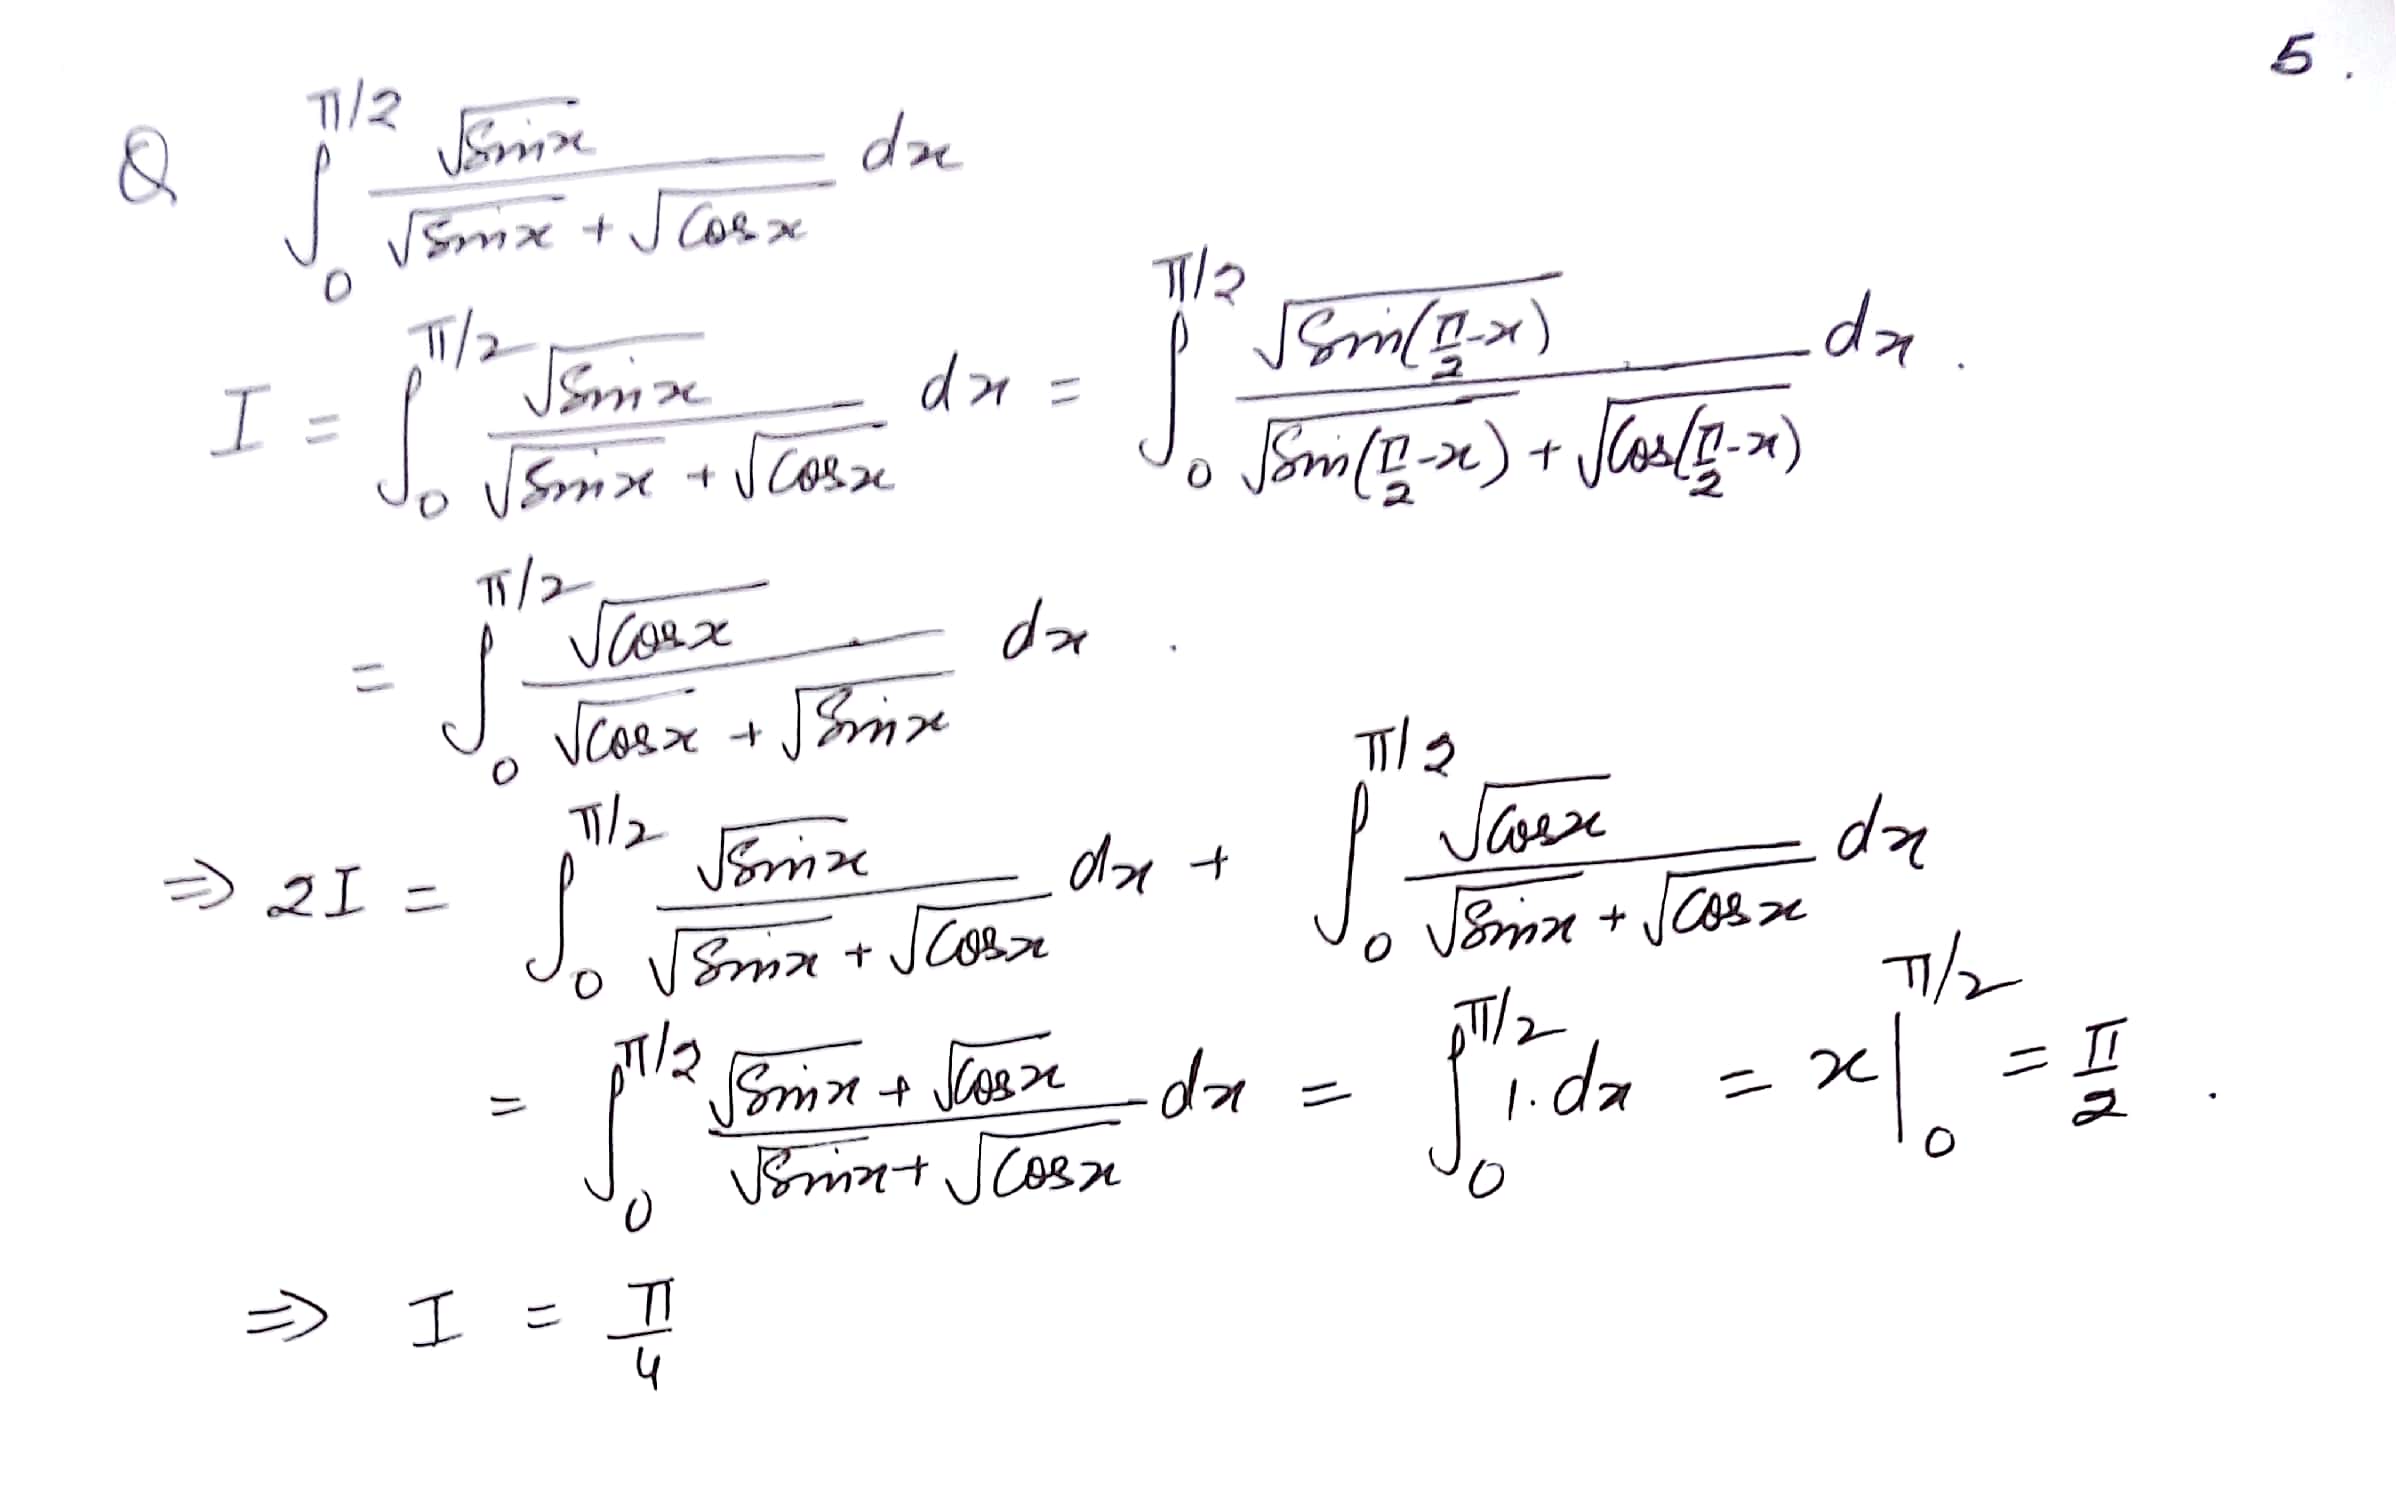 5.
Q ∫₀^{π/2} √sinx / (√sinx + √cosx) dx
I = ∫₀^{π/2} √sinx / (√sinx + √cosx) dx = ∫₀^{π/2} √sin(π/2-x) / (√sin(π/2-x) + √cos(π/2-x)) dx.
= ∫₀^{π/2} √cosx / (√cosx + √sinx) dx.
⇒ 2I = ∫₀^{π/2} √sinx / (√sinx + √cosx) dx + ∫₀^{π/2} √cosx / (√sinx + √cosx) dx
= ∫₀^{π/2} (√sinx + √cosx) / (√sinx + √cosx) dx = ∫₀^{π/2} 1.dx = x|₀^{π/2} = π/2.
⇒ I = π/4